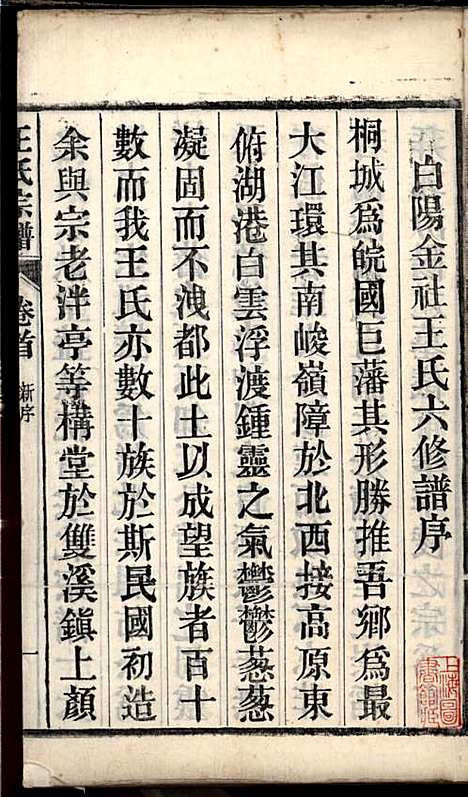 白陽金社王氏六修譜序
桐城為皖國巨藩其形勝推吾鄉為最
大江環其南峻嶺障於北西接高原東
俯湖港白雲浮渡鍾靈之氣鬱鬱蔥蔥
凝固而不洩都此土以成望族者百十
數而我王氏亦數十族於斯民國初造
余與宗老泮亭等構堂於雙溪鎮上顏
王氏宗譜
卷首
新序
一
上海圖
書館藏